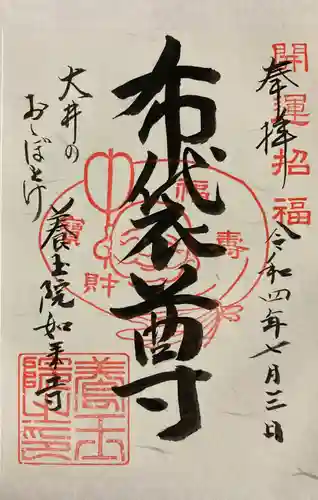 開運招福
奉拝
令和四年七月三日
布袋尊
福
寿
宝
財
大井の
おゝぼとけ
養玉院如来寺
養玉
院印